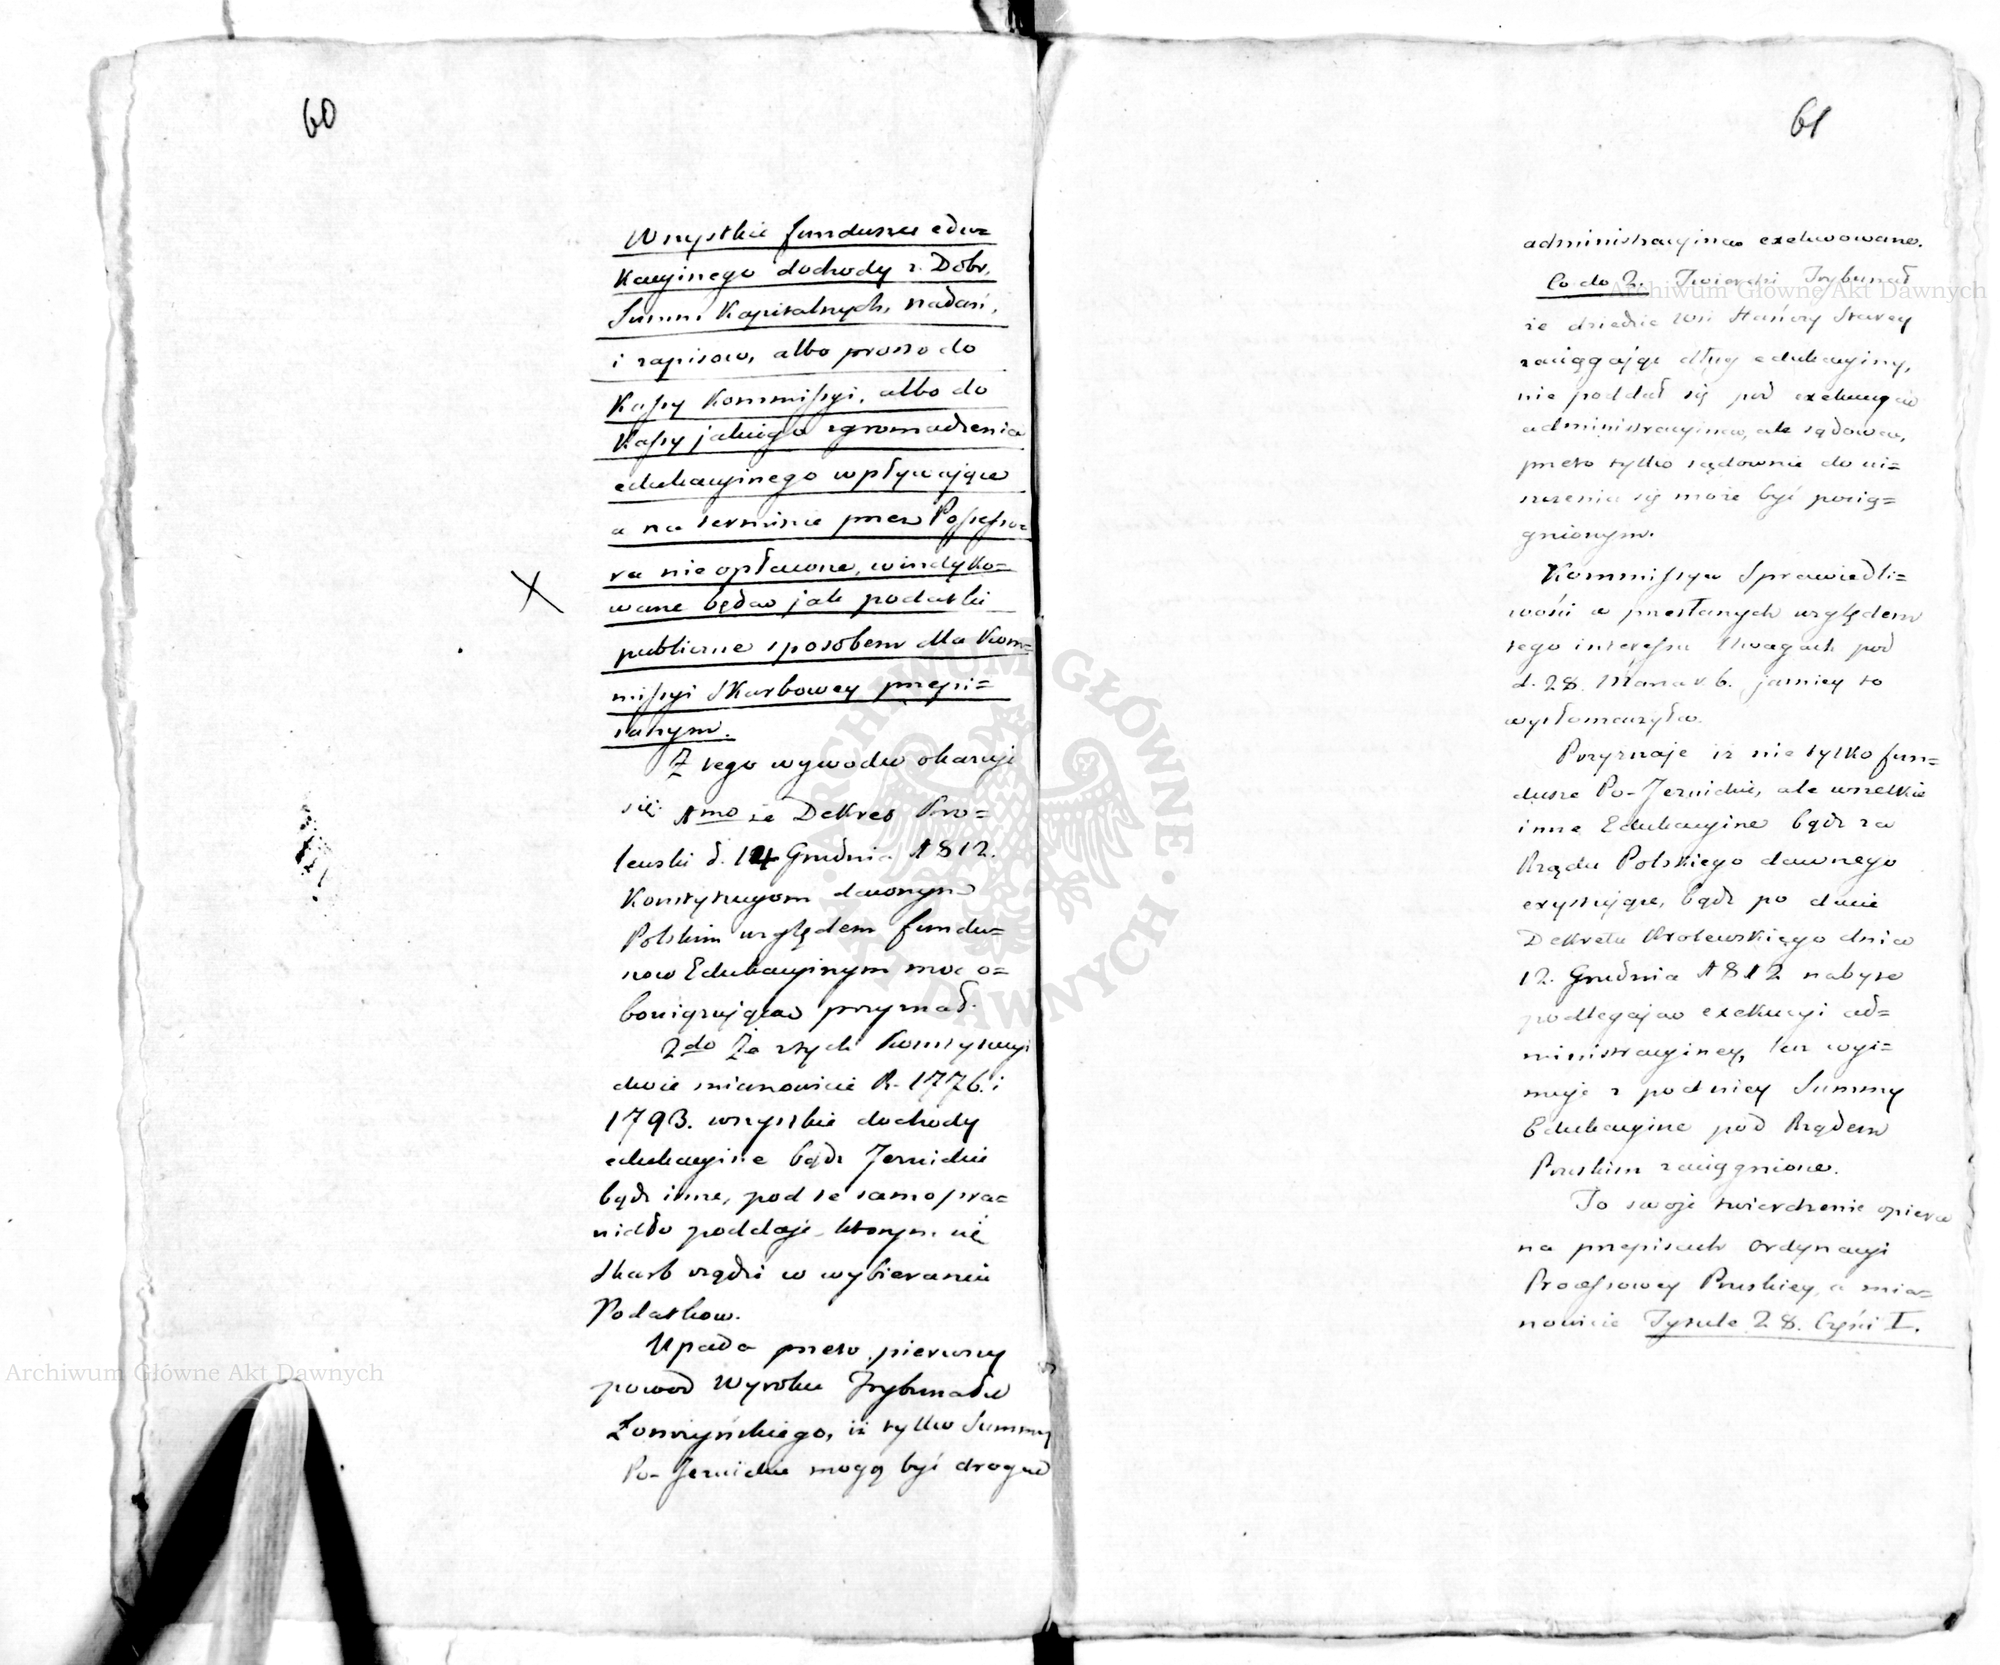 60
Wszystkie fundusze edu=
kacyinego dochody z Dobr,
Summ Kapitalnych, nadań,
i zapisow, albo prosto do
Kassy Kommissyi, albo do
Kassy jakiego zgromadzenia
edukacyinego wpływające
a na terminie przez Possesso=
ra nie opłacone, windyko=
wane będą jak podatki
publiczne sposobem dla Kom=
missyi Skarbowey przepi=
sanym.
Z tego wywodu okazuje
się 1mo że Dekret Kro=
lewski d. 14 Grudnia 1812.
Konstytucyom dawnym
Polskim względem fundu=
szow Edukacyinym moc o=
bowiązującą przyznał.
2do Że z tych Konstytucyi
dwie mianowicie R. 1776. i
1793. wszystkie dochody
edukacyine bądź Jezuickie
bądź inne, pod te same pra=
widło poddaje, ktorym się
Skarb rządzi w wybieraniu
Podatkow.
Upada przeto pierwszy
powod Wyroku Trybunału
Łomżyńskiego, iż tylko Summy
Po-Jezuickie mogą być drogą
61
administracyiną exekwowane.
Co do 2. Twierdzi Trybunał
że dziedzic Wsi Stańczy Starey
zaciągając długi edukacyiny,
nie poddał się pod exekucyą
administracyiną, ale sądową,
przeto tylko sądownie do ui=
szczenia się może być pocią=
gnionym.
Kommissya Sprawiedli=
wości w przesłanych względem
tego interessu Uwagach pod
d. 28. Marca r. b. jaśniey to
wytłomaczyła.
Przyznaje iż nie tylko fun=
dusze Po-Jezuickie, ale wszelkie
inne Edukacyine bądź za
Rządu Polskiego dawnego
exystujące, bądź po dacie
Dekretu Krolewskiego dnia
12. Grudnia 1812 nabyte
podlegają exekucyi ad=
ministracyiney, lecz wyi=
muje z pod niey Summy
Edukacyine pod Rządem
Pruskim zaciągnione.
To swoje twierdzenie opiera
na przepisach Ordynacyi
Processowey Pruskiey, a mia=
nowicie Tytule 28. Części I.
Archiwum Główne Akt Dawnych
Archiwum Główne Akt Dawnych
ARCHIWUM GŁÓWNE · AKT DAWNYCH ·